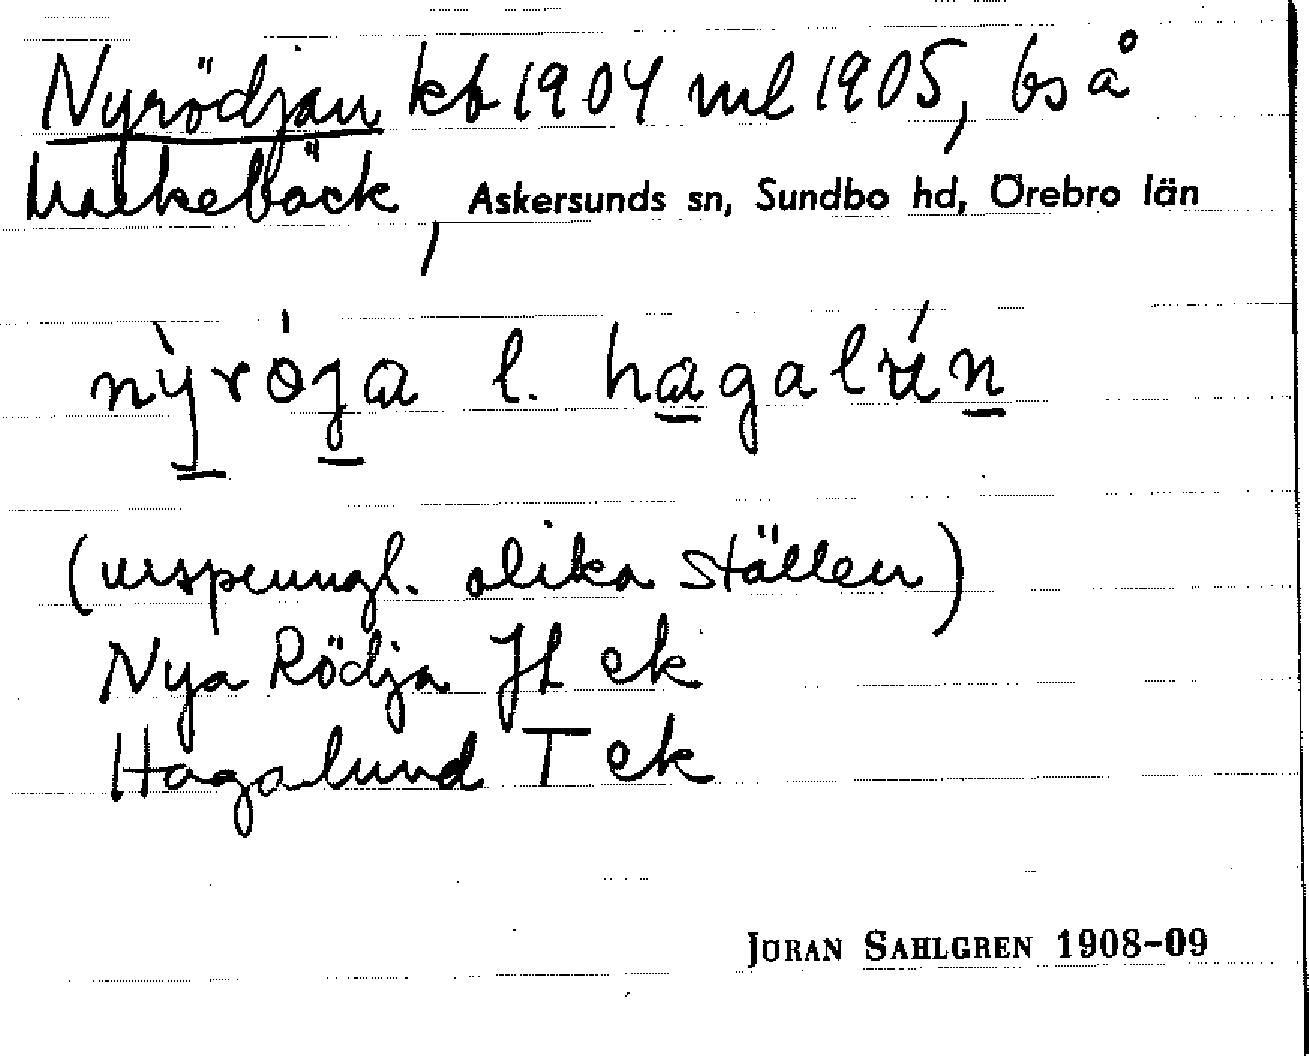 Nyrödjan kb 1904 ml 1905, bs å
Valkebäck, Askersunds sn, Sundbo hd, Örebro län
nỳröja l. hagalún
(ursprungl. olika ställen)
Nya Rödja JL ek
Hagalund T ek
JÖRAN SAHLGREN 1908-09